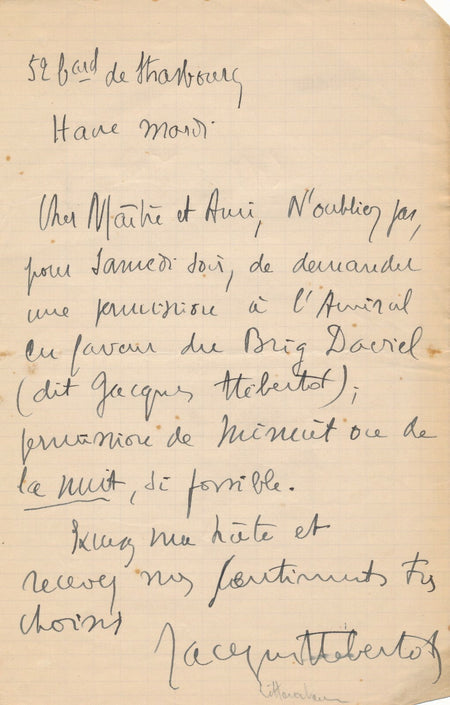 52 bard de Strasbourg
Havre mardi
Cher Maître et Ami, N'oubliez pas,
pour Samedi soir, de demander
une permission à l'Amiral
en faveur du Brig Daviel
(dit Jacques Hébertot);
permission de Minuit ou de
la nuit, si possible.
Excusez ma hâte et
recevez mes sentiments très
choisis
Jacques Hébertot